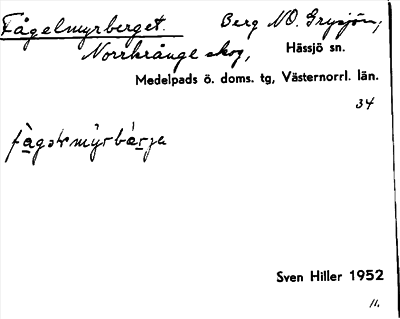 Fågelmyrberget. Berg NO. Grysjön,
Norrkrånge skog, Hässjö sn.
Medelpads ö. doms. tg, Västernorrl. län.
34
Sven Hiller 1952
11.